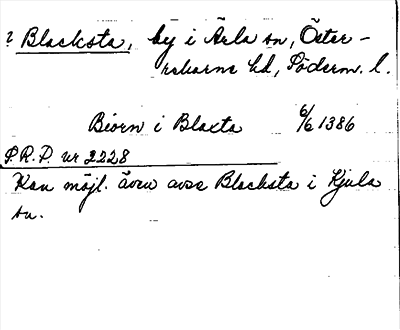 ? Blacksta, by i Ärla sn, Öster-
rekarne hd, Söderm. l.
Beorn i Blaxta 6/6 1386
P.R.P. nr 2228
Kan möjl. även avse Blacksta i Kjula
sn.